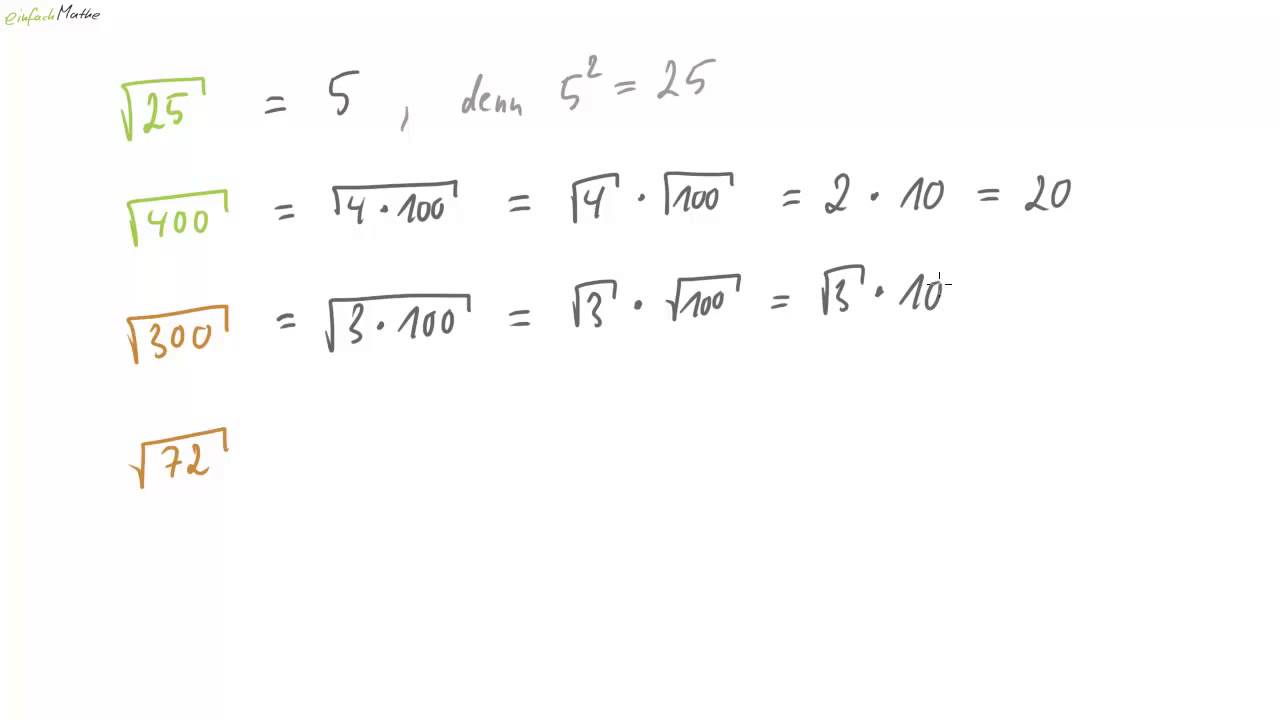 einfachMathe
√25 = 5 , denn 5² = 25
√400 = √4 · 100 = √4 · √100 = 2 · 10 = 20
√300 = √3 · 100 = √3 · √100 = √3 · 10
√72